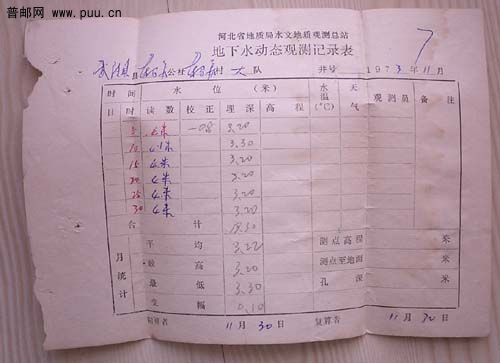 普邮网 www.puu.cn
河北省地质局水文地质观测总站
地下水动态观测记录表
7
县 公社 村 大队 井号 1973年11月
时间 水位(米) 水温(℃) 天气 观测员 备注
日 时 读数 校正 埋深 高程
5 4米 -0.8 3.20
10 4.1米 3.30
15 4米 3.20
20 4米 3.20
25 4米 3.20
30 4米 3.20
合计 19.30
月统计
平均 3.22 测点高程 米
较高 3.20 测点至地面 米
最低 3.30 孔深 米
变幅 0.10
计算者 11月30日 复算者 11月30日